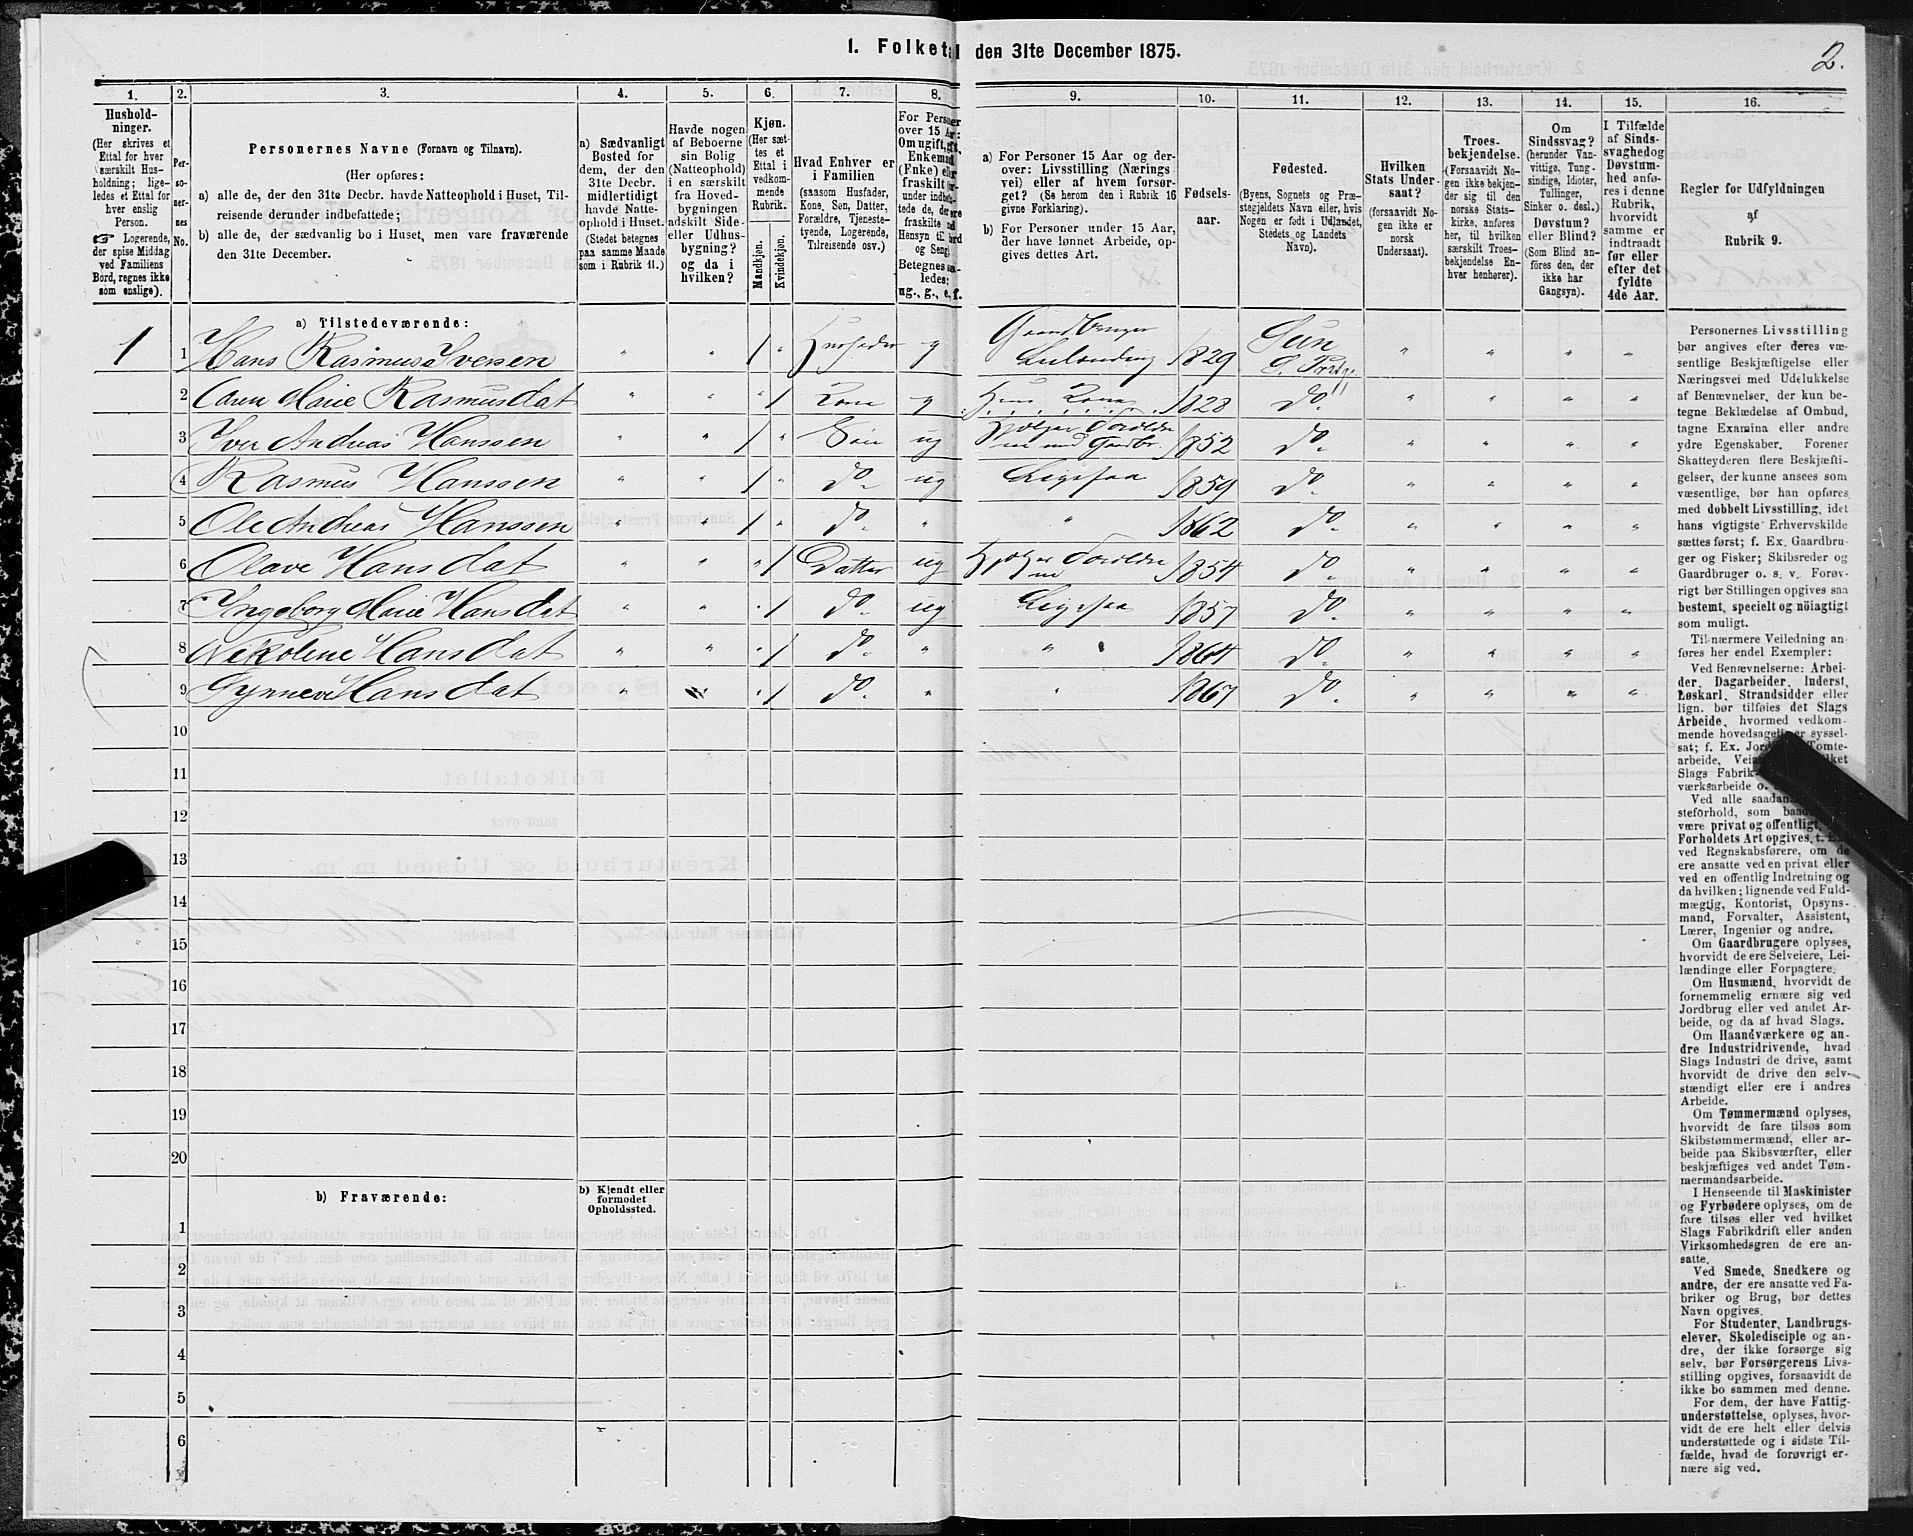 1. Folketal den 31te December 1875.
2.
1. 2. 3. 4. 5. 6. 7. 8. 9. 10. 11. 12. 13. 14. 15. 16.
Hushold-
ninger.
(Her skrives et
Ettal for hver
særskilt Hus-
holdning; lige-
ledes et Ettal for
hver enslig
Person.
☞ Logerende,
der spise Middag
ved Familiens
Bord, regnes ikke
som enslige).
Per-
so-
ner-
nes
No.
Personernes Navne (Fornavn og Tilnavn).
(Her opføres:
a) alle de, der den 31te Decbr. havde Natteophold i Huset, Til-
reisende derunder indbefattede;
b) alle de, der sædvanlig bo i Huset, men vare fraværende
den 31te December.
a) Sædvanligt
Bosted for
dem, der den
31te Decbr.
midlertidigt
havde Natte-
ophold i Huset.
(Stedet betegnes
paa samme Maade
som i Rubrik 11.)
Havde nogen
af Beboerne
sin Bolig
(Natteophold)
i en særskilt
fra Hoved-
bygningen
adskilt Side-
eller Udhus-
bygning?
og da i
hvilken?
Kjøn.
(Her sæt-
tes et
Ettal i
vedkom-
mende
Rubrik.
Mandkjøn.
Kvindekjøn.
Hvad Enhver er
i Familien
(saasom Husfader,
Kone, Søn, Datter,
Forældre, Tjeneste-
tyende, Logerende,
Tilreisende osv.)
For Personer
over 15 Aar:
Om ugift, gift,
Enkemand
(Enke) eller
fraskilt
ug., g., e., f.
a) For Personer 15 Aar og der-
over: Livsstilling (Nærings
vei) eller af hvem forsør-
get? (Se herom den i Rubrik 16
givne Forklaring).
b) For Personer under 15 Aar,
der have lønnet Arbeide, op-
gives dettes Art.
Fødsels-
aar.
Fødested.
(Byens, Sognets og Præ-
stegjeldets Navn eller, hvis
Nogen er født i Udlandet,
Stedets og Landets
Navn).
Hvilken
Stats Under-
saat?
(forsaavidt No-
gen ikke er
norsk
Undersaat).
Troes-
bekjendelse.
(Forsaavidt No-
gen ikke bekjen-
der sig til den
norske Stats-
kirke, anføres
her, til hvilken
særskilt Troes-
bekjendelse En-
hver henhører).
Om
Sindssvag?
(herunder Van-
vittige, Tung-
sindige, Idioter,
Tullinger,
Sinker o. desl.)
Døvstum?
eller Blind?
(Som Blind an-
føres den, der
ikke har
Gangsyn).
I Tilfælde
af Sinds-
svaghed og
Døvstum-
hed anfø-
res i denne
Rubrik,
hvorvidt
samme er
indtraadt
før eller
efter det
fyldte
4de Aar.
Regler for Udfyldningen
af
Rubrik 9.
a) Tilstedeværende:
1 1 Hans Rasmus Iversen " " 1 " Husfader g Gaardbruger Leilænding 1829 " " " "
2 Caren Marie Rasmusdat " " " 1 Kone g Hans Kone 1828 Do " " " "
3 Iver Andreas Hanssen " " 1 " Søn ug Hjelper Forældre 1852 Do " " " "
4 Rasmus Hanssen " " 1 " Do ug Ligesaa 1859 Do " " " "
5 Ole Andreas Hanssen " " 1 " Do " " 1862 Do " " " "
6 Olave Hansdat " " " 1 Datter ug Hjelper Forældre 1854 Do " " " "
7 Ingeborg Marie Hansdat " " " 1 Do ug Ligesaa 1857 Do " " " "
8 Nikoline Hansdat " " " 1 Do " " 1864 Do " " " "
9 Hansdat " " " 1 Do " " 1867 Do " " " "
10
11
12
13
14
15
16
17
18
19
20
b) Fraværende:
b) Kjendt eller
formodet
Opholdssted.
1
2
3
4
5
6
Personernes Livsstilling
bør angives efter deres væ-
sentlige Beskjæftigelse eller
Næringsvei med Udelukkelse
af Benævnelser, der kun be-
tegne Beklædelse af Ombud,
tagne Examina eller andre
ydre Egenskaber. Forener
Skatteyderen flere Beskjæfti-
gelser, der kunne ansees som
væsentlige, bør han opføres
med dobbelt Livsstilling, idet
hans vigtigste Erhvervskilde
sættes først; f. Ex. Gaardbru-
ger og Fisker; Skibsreder og
Gaardbruger o. s. v. Forøv-
rigt bør Stillingen opgives saa
bestemt, specielt og nöiagtigt
som muligt.
Til nærmere Veiledning an-
føres her endel Exempler:
Ved Benævnelserne: Arbei-
der, Dagarbeider, Inderst,
Løskarl, Strandsidder eller
lign. bør tilføies det Slags
Arbeide, hvormed vedkom-
mende hovedsagelig er syssel-
sat; f. Ex. Tomte-
arbeide,
Slags Fabrik-
værksarbeide o.
Ved alle
steforhold, som
være privat og offentligt,
Forholdets Art opgives,
ved Regnskabsførere, om de
ere ansatte ved en privat eller
ved en offentlig Indretning og
da hvilken; lignende ved Fuld-
mægtig, Kontorist, Opsyns-
mand, Forvalter, Assistent,
Lærer, Ingeniør og andre.
Om Gaardbrugere oplyses,
hvorvidt de ere Selveiere, Lei-
lændinge eller Forpagtere.
Om Husmænd, hvorvidt de
fornemmelig ernære sig ved
Jordbrug eller ved andet Ar-
beide, og da af hvad Slags.
Om Haandværkere og an-
dre Industridrivende, hvad
Slags Industri de drive, samt
hvorvidt de drive den selv-
stændigt eller ere i andres
Arbeide.
Om Tømmermænd oplyses,
hvorvidt de fare tilsøs som
Skibstømmermænd, eller ar-
beide paa Skibsværfter, eller
beskjæftiges ved andet Tøm-
mermandsarbeide.
I Henseende til Maskinister
og Fyrbødere oplyses, om de
fare tilsøs eller ved hvilket
Slags Fabrikdrift eller anden
Virksomhedsgren de ere an-
satte.
Ved Smede, Snedkere og
andre, der ere ansatte ved Fa-
briker og Brug, bør dettes
Navn opgives.
For Studenter, Landbrugs-
elever, Skoledisciple og an-
dre, der ikke forsørge sig
selv, bør Forsørgerens Livs-
stilling opgives, forsaavidt de
ikke bo sammen med denne.
For dem, der have Fattig-
understøttelse, oplyses, hvor-
vidt de ere helt eller delvis
understøttede og i sidste Til-
fælde, hvad de forøvrigt er-
nære sig ved.